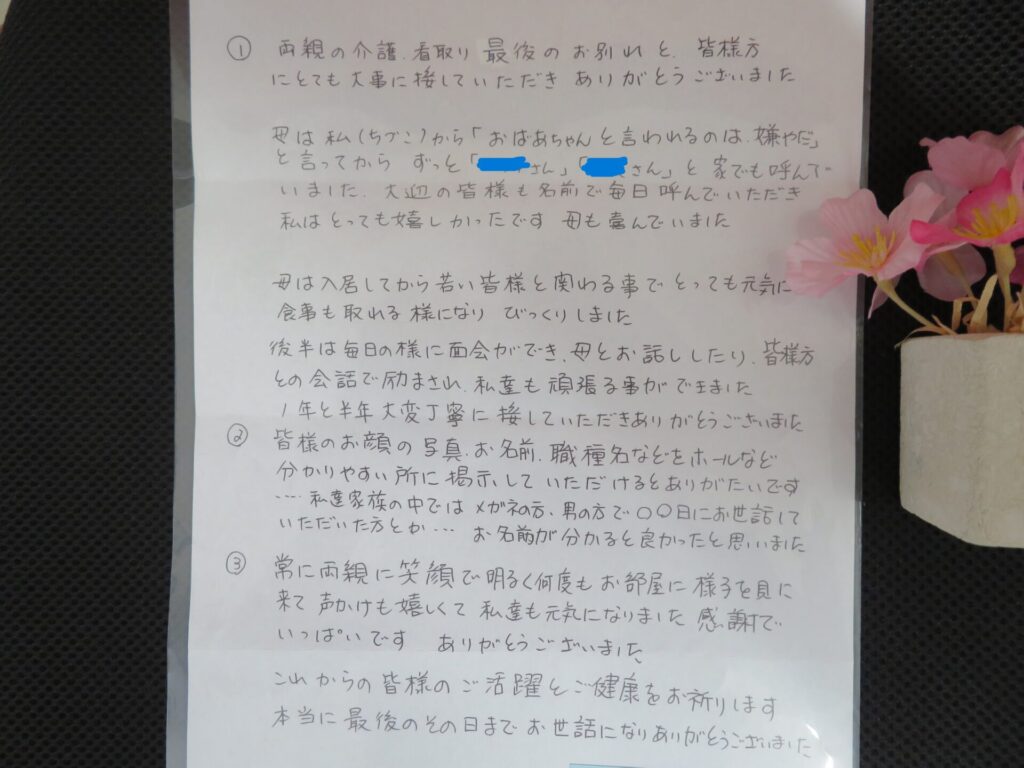 ① 両親の介護、看取り 最後の お別れと、皆様方
にとても大事に接していただき ありがとうございました
母は 私(ちづこ)から「おばあちゃんと言われるのは、嫌やだ」
と言ってから ずっと「さん」「さん」と 家でも呼んで
いました、大辺の皆様も名前で毎日呼んでいただき
私はとっても嬉しかったです 母も喜んでいました
母は入居してから若い皆様と関わる事で とっても元気に
食事も取れる様になり びっくりしました
後半は毎日の様に面会ができ、母とお話ししたり、皆様方
との会話で励まされ、私達も頑張る事ができました
1年と半年 大変丁寧に接していただきありがとうございました
② 皆様のお顔の写真、お名前、職種名などをホールなど
分かりやすい所に掲示していただけるとありがたいです
…. 私達家族の中では メガネの方、男の方で〇〇日にお世話して
いただいた方とか… お名前が分かると良かったと思いました
③ 常に両親に笑顔で明るく何度もお部屋に様子を見に
来て 声かけも嬉しくて 私達も元気になりました 感謝で
いっぱいです ありがとうございました
これからの皆様のご活躍とご健康をお祈りします
本当に最後のその日までお世話になりありがとうございました